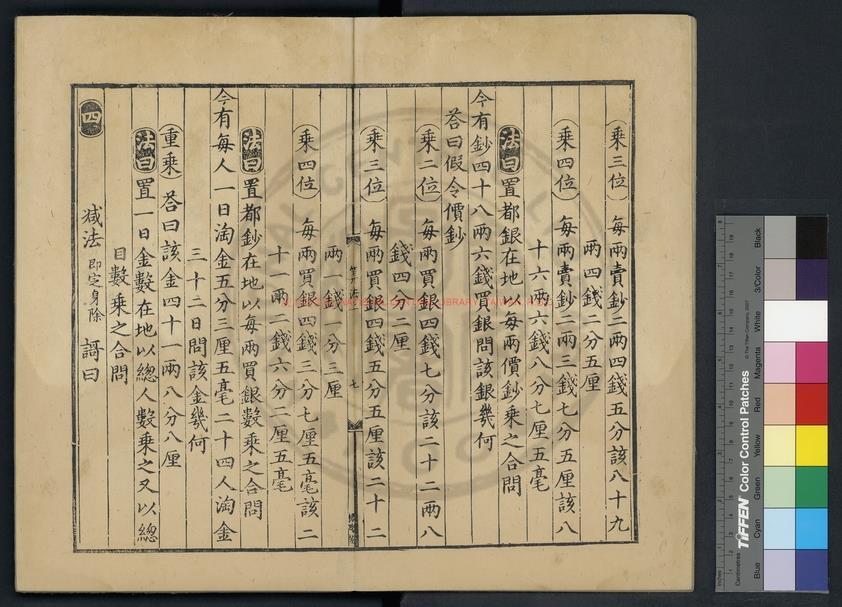 乘三位 每兩賣鈔二兩四錢五分該八十九
兩四錢二分五厘
乘四位 每兩賣鈔二兩三錢七分五厘該八
十六兩六錢八分七厘五毫
法曰 置都銀在地以每兩價鈔乘之合問
今有鈔四十八兩六錢買銀問該銀幾何
荅曰假令價鈔
乘二位 每兩買銀四錢七分該二十二兩八
錢四分二厘
乘三位 每兩買銀四錢五分五厘該二十二
兩一錢一分三厘
乘四位 每兩買銀四錢三分七厘五毫該二
十一兩二錢六分二厘五毫
法曰 置都鈔在地以每兩買銀數乘之合問
今有每人一日淘金五分三厘五毫二十四人淘金
三十二日問該金幾何
重乘 荅曰該金四十一兩八分八厘
法曰 置一日金數在地以總人數乘之又以總
日數乘之合問
四 减法即定身除 謌曰
TIFFEN Color Control Patches
© The Tiffen Company, 2007
Inches
Centimetres
Blue
Cyan
Green
Yellow
Red
Magenta
White
3/Color
Black